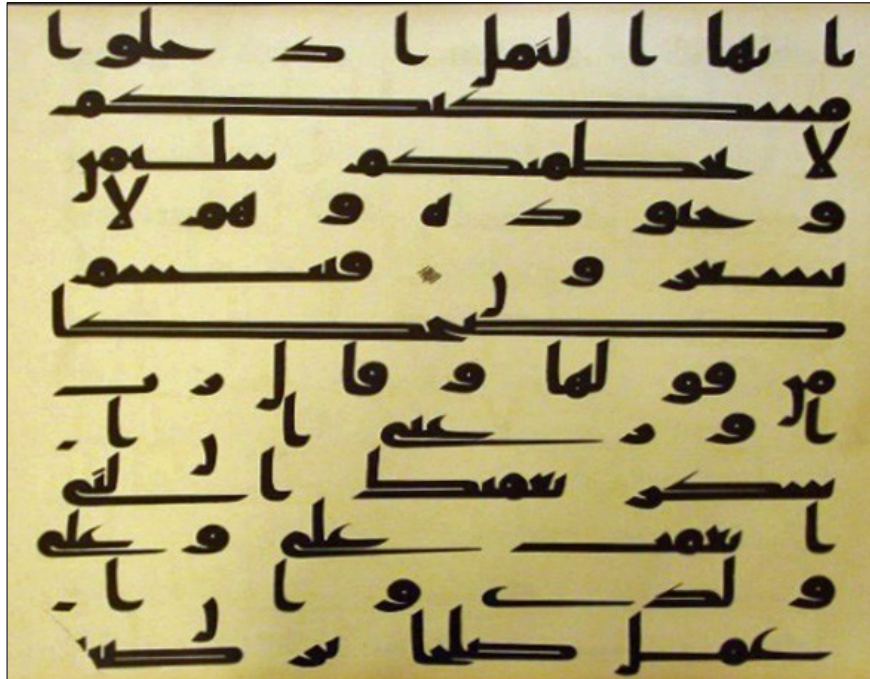 يا يها النمل ادخلوا
مسكنكم
لا يحطمنكم سليمن
و جنوده و هم لا
يشعرون فتبسم
ضحكا
من قولها و قال رب
اوزعني ان ا
شكر نعمتك التي
انعمت علي و على
ولدي و ان ا
عمل صلحا ترضيه